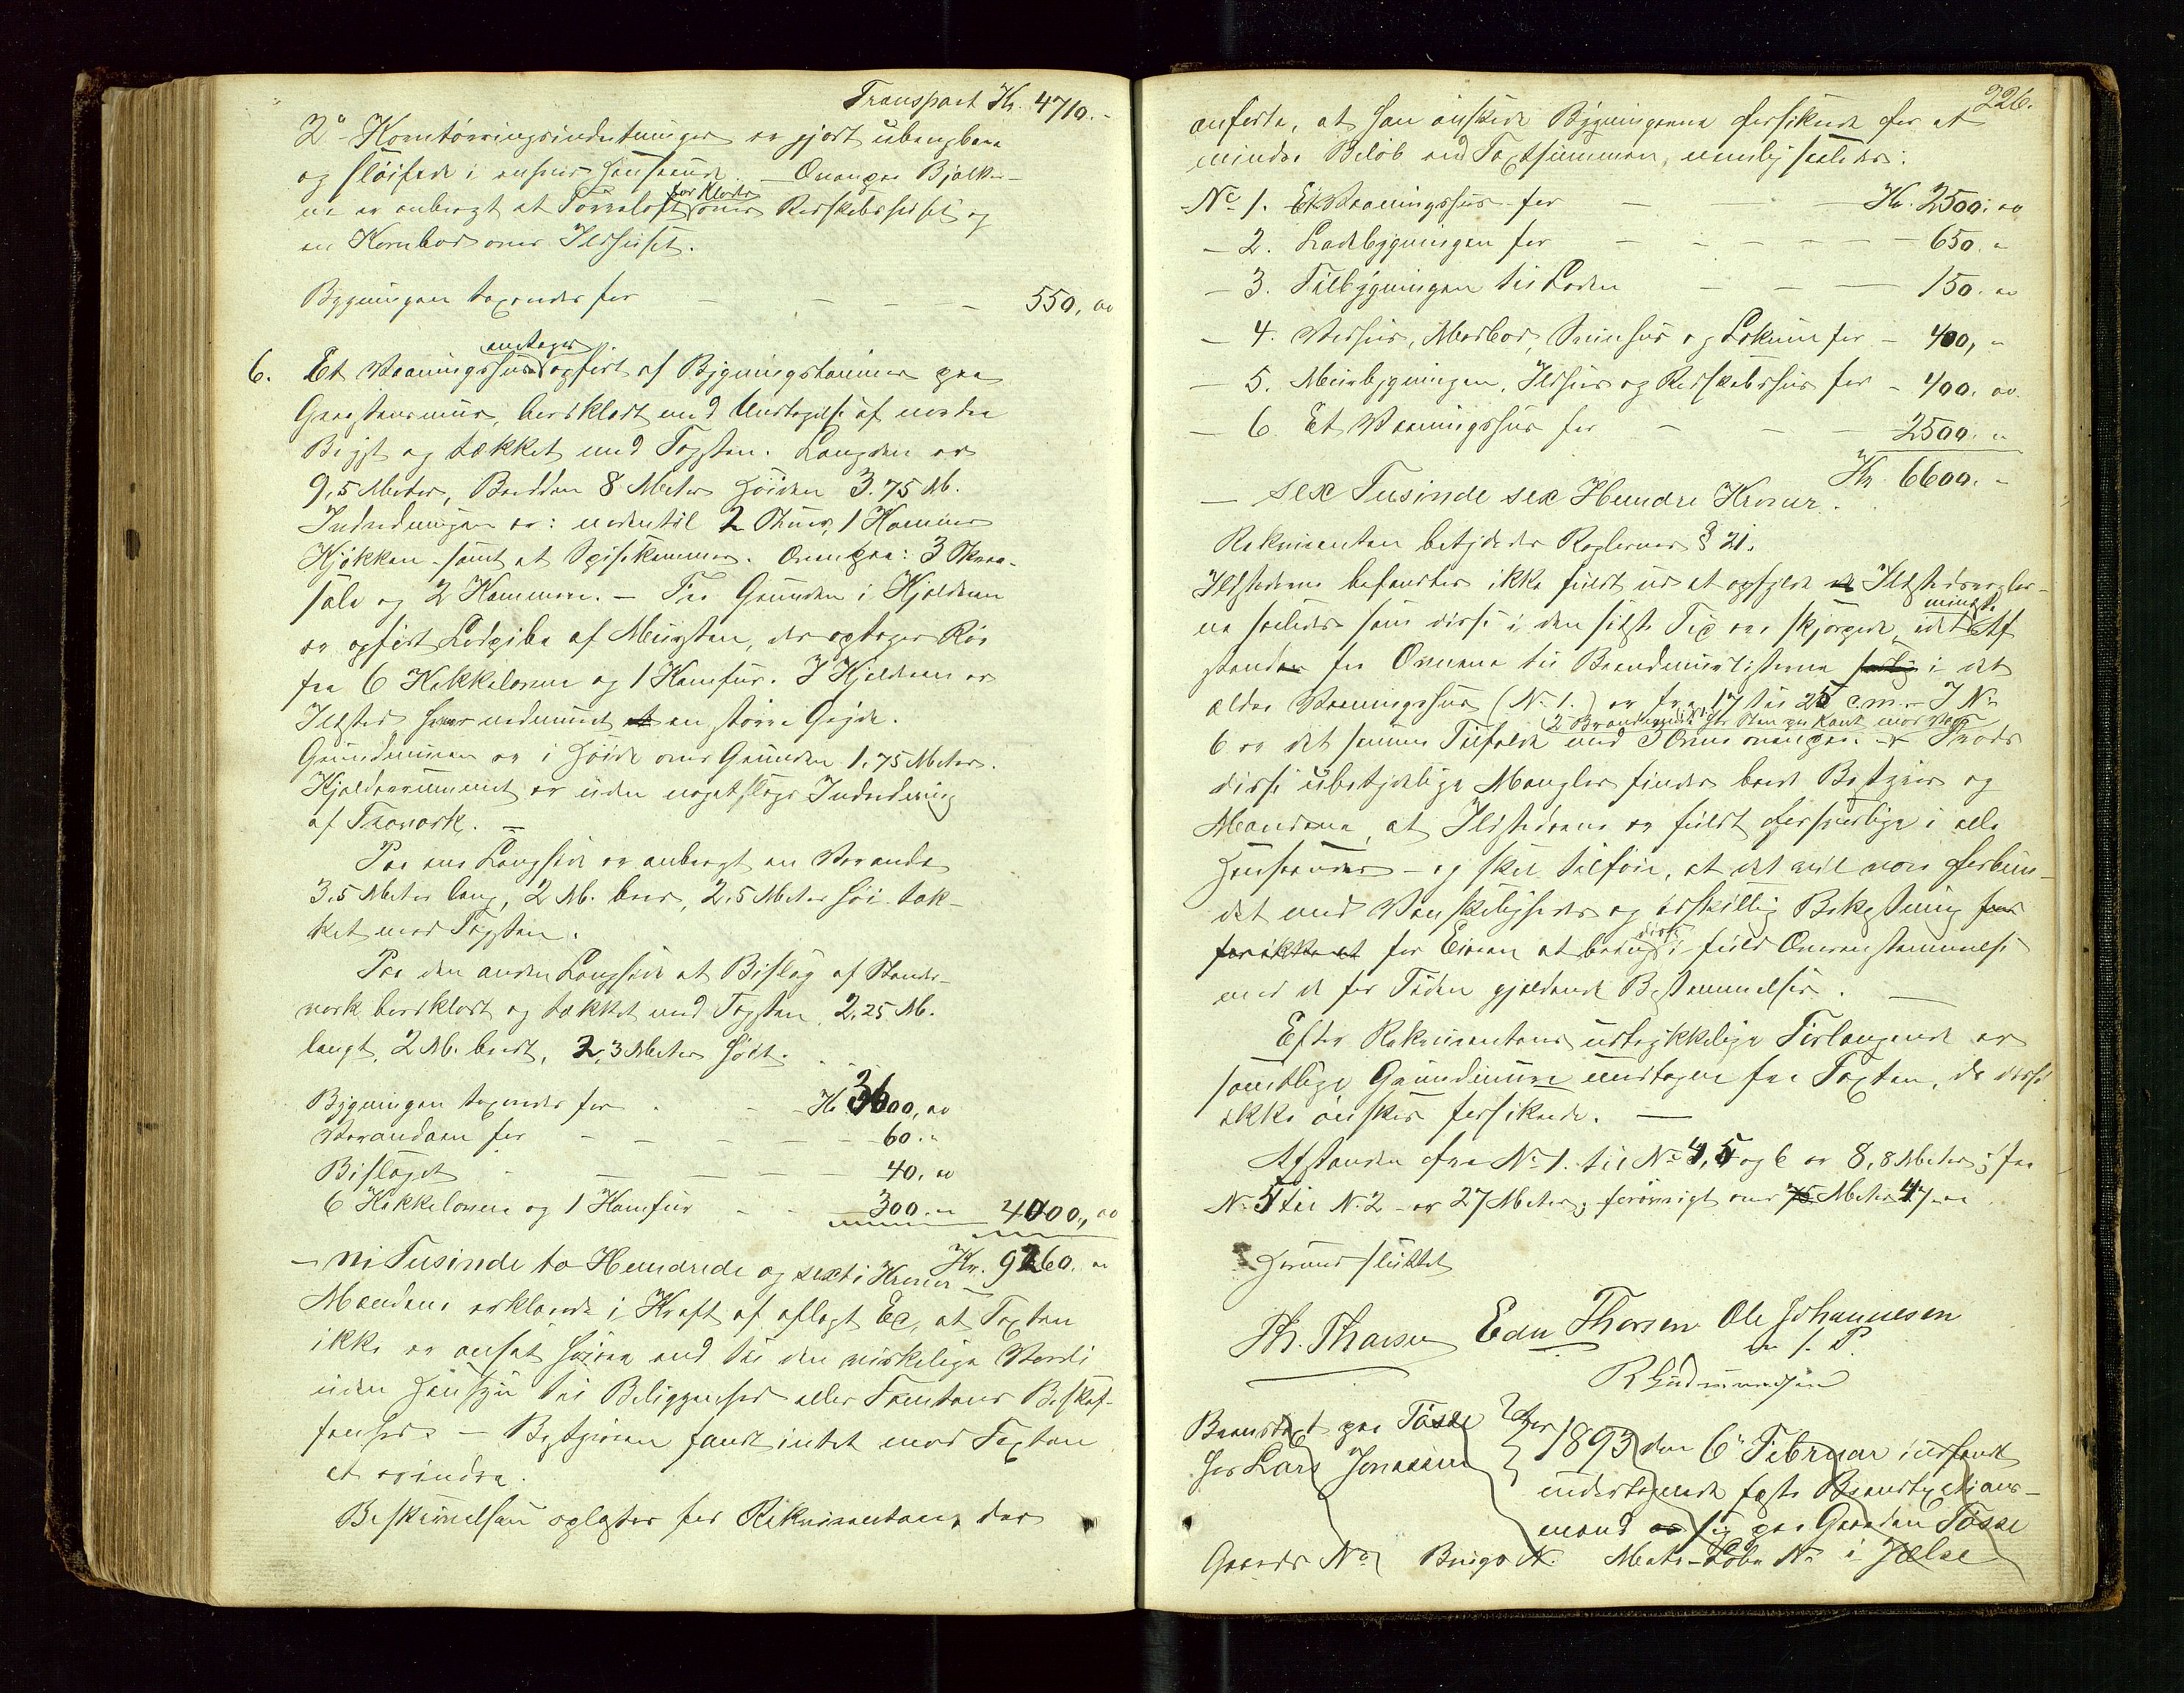 Transport Kr. 4710.-
2° Korntørringsindretninger er gjort ubrugbare
og sløifede i enhver Henseende. Ovenpaa Bjælker-
ne er anbragt et Tørreloft for Klæder over Redskabshuset og
en Kornbod over Ildhuset.
Bygningen taxeredes for - - - - 550. "
6. Et Vaaningshus, en etages, opført af Bygningstømmer paa
Graastensmur, bordklædt med Undtagelse af nordre
og tækket med Tagsten. Længden er
9,5 Meter, Bredden 8 Meter Høiden 3.75 M.
Indredningen er: nedentil 2 Stuer, 1 Kammer
Kjøkken samt et Spisekammer. Ovenpaa: 3
sale og 2 Kammere. - Fra Grunden i Kjelderen
er opført Ledpibe af Mursten, der optager Rør
fra 6 Kakkelovne og 1 Komfur. I Kjelderen er
Ildsted hvor nedmuret en større Gryde.
Grundmuren er i Høide over Grunden 1,75 Meter.
Kjelderrummet er uden nogetslags Indredning
af Træværk. -
Paa ene Langside er anbragt en Veranda
3,5 Meter lang, 2 M. bred, 2,5 Meter høi tæk-
ket med Tagsten.
Paa den anden Langside et Bislag af Stander-
værk bordklædt og tækket med Tagsten, 2,25 M.
langt, 2 M. bredt, 2,3 Meter høit.
Bygningen taxeredes for - - Kr 3600, "
Verandaen for - - - - - 60. "
Bislaget - - - - 40. "
6 Kakkelovne og 1 Komfur - - 300. " 4000, "
Kr. 9260. "
- ni Tusinde to Hundrede og sexti Kroner -
Mændene erklærede i Kraft af aflagt Ed, at Taxten
ikke er ansat høiere end til den virkelige Værdi
uden Hensyn til Beliggenhed eller Tomtens Beskaf-
fenhed. - Bestyreren fandt intet mod Taxten
at erindre.
Beskrivelsen oplæstes for Rekvirenten, der
226.
anførte, at han ønskede Bygningerne forsikrede for et
mindre Beløb end Taxtsummen, nemlig saaledes:
No 1. Et Vaaningshus for - - Kr. 2500. "
- 2. Ladebygningen for - - - - - 650. "
- 3. Tilbygningen til Laden - - - 150. "
- 4. Vedhus, Madbod, Svinhus og Lokum for - 400, "
- 5. Murbygningen, Ildhus og Redskabshus for - 400. "
- 6. Et Vaaningshus for - - - 2500. "
Kr. 6600. "
- sex Tusinde sex Hundre Kroner.
Rekvirenten betydedes Reglernes § 21.
Ildstederne befandtes ikke fuldt ud at opfylde Ildstedsregler-
ne saaledes som disse i den sidste Tid er skjærpede, idet mindste Af
standen fra Ovnene til Brandmurlisterne i det
ældre Vaaningshus (No 1.) er fra 17 til 25 c.m. - I No
6 er det samme Tilfælde med 3 Ovne ovenpaa. - Trods
disse ubetydelige Mangler finder baade Bestyrer og
Mændene, at Ildstederne er fuldt forsvarlige i alle
Henseender - og skal tilføie, at det vil være forbun-
det med Vanskeligheder og adskillig Bekostning
for Eieren at bringe disse i fuld Overenstemmelse
med de for Tiden gjældende Bestemmelser. -
Efter Rekvirentens udtrykkelige Forlangende er
samtlige Grundmure undtagne fra Taxten, da disse
ikke ønskes forsikrede. -
Afstanden fra No 1. til No 4, 5 og 6 er 8,8 Meter; fra
No 5 til No. 2 er 27 Meter; forøvrigt over Meter 47.
Herund sluttet
Th. Thorsen Edv Thorsen Ole Johannesen
m. f. P.
R Gudmundsen
Brandtaxt paa Tøsse
hos Lars Jonassen
Aar 1893 den 6te Februar indfandt
undertegnede faste Brandtaxtions-
mænd sig paa Gaarden Tøsse
Gaards No Brugs No Matr.-Løbe No i Jelse